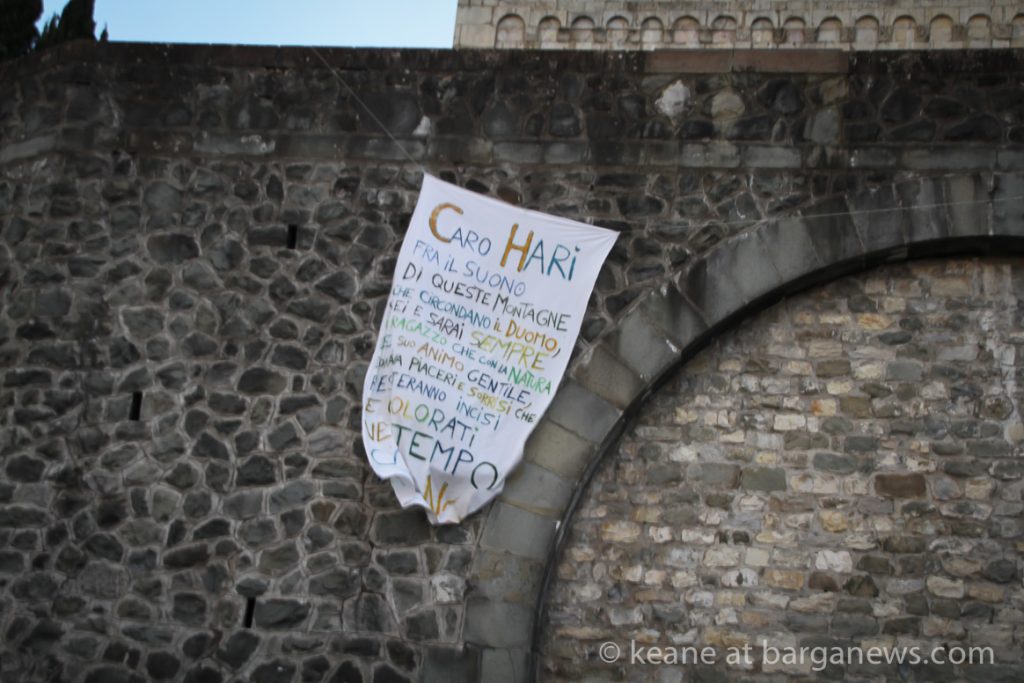 CARO HARI
FRA IL SUONO
DI QUESTE MONTAGNE
CHE CIRCONDANO IL DUOMO,
SEI E SARAI SEMPRE
RAGAZZO CHE CON LA NATURA
E SUO ANIMO GENTILE,
PIACERI E SORRISI CHE
RESTERANNO INCISI
E COLORATI
TEMPO
© keane at barganews.com